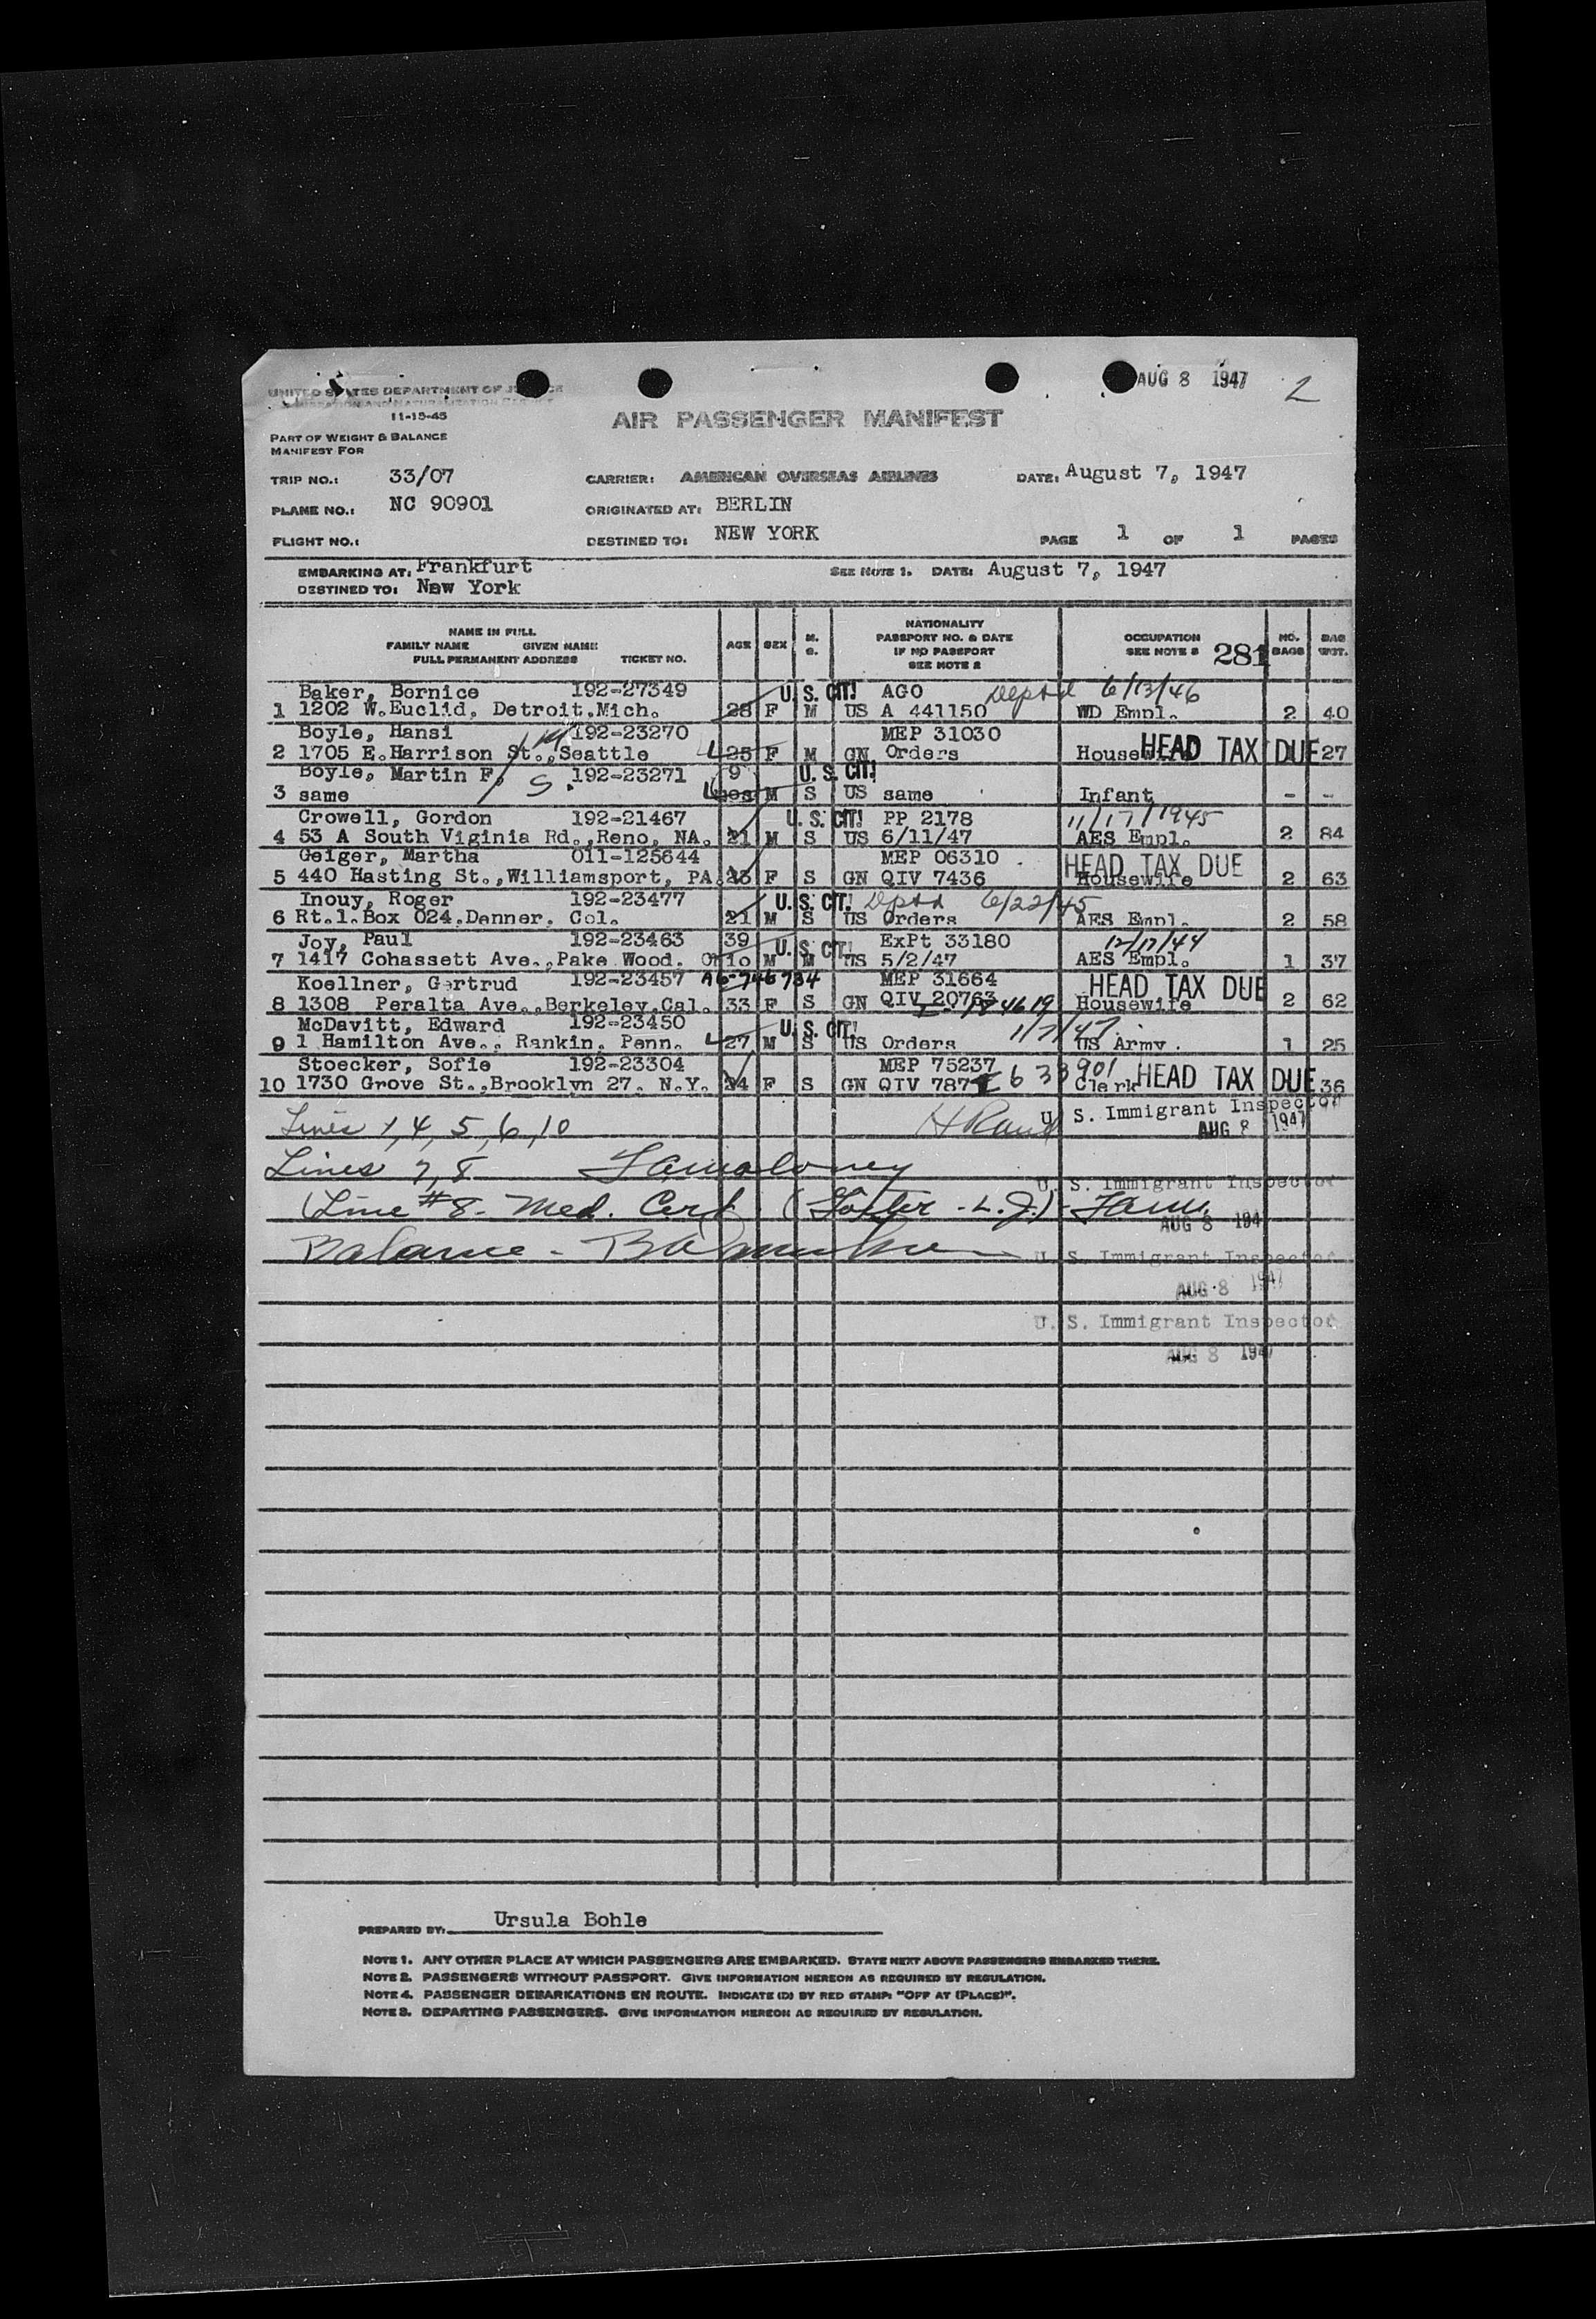 AUG 8 1947 2
UNITED STATES DEPARTMENT OF JUSTICE
IMMIGRATION AND NATURALIZATION SERVICE
11-15-45
AIR PASSENGER MANIFEST
PART OF WEIGHT & BALANCE
MANIFEST FOR
TRIP NO.: 33/07 CARRIER: AMERICAN OVERSEAS AIRLINES DATE: August 7, 1947
PLANE NO.: NC 90901 ORIGINATED AT: BERLIN
FLIGHT NO.: DESTINED TO: NEW YORK PAGE 1 OF 1 PAGES
EMBARKING AT: Frankfurt SEE NOTE 1. DATE: August 7, 1947
DESTINED TO: New York
NAME IN FULL
FAMILY NAME GIVEN NAME
FULL PERMANENT ADDRESS TICKET NO.
AGE SEX M. S.
NATIONALITY
PASSPORT NO. & DATE
IF NO PASSPORT
SEE NOTE 2
OCCUPATION
SEE NOTE 3 281
NO. BAGS BAG WGT.
Baker, Bernice 192-27349 U.S. CIT! AGO Deptd 6/13/46
1 1202 W.Euclid, Detroit,Mich. 28 F M US A 441150 WD Empl. 2 40
Boyle, Hansi 192-23270 MEP 31030
2 1705 E.Harrison St.,Seattle 25 F M GN Orders Housewife HEAD TAX DUE 27
Boyle, Martin F. S. 192-23271 9 U.S. CIT!
3 same mos M S US same Infant - -
Crowell, Gordon 192-21467 U.S. CIT! PP 2178 11/17/1945
4 53 A South Viginia Rd.,Reno, NA. 21 M S US 6/11/47 AES Empl. 2 84
Geiger, Martha 011-125644 MEP 06310 HEAD TAX DUE
5 440 Hasting St.,Williamsport, PA. 23 F S GN QIV 7436 Housewife 2 63
Inouy, Roger 192-23477 U.S. CIT! Deptd 6/22/45
6 Rt.1.Box 024,Denner, Col. 21 M S US Orders AES Empl. 2 58
Joy, Paul 192-23463 39 U.S. CIT! ExPt 33180 12/17/44
7 1417 Cohassett Ave.,Pake Wood. Ohio M M US 5/2/47 AES Empl. 1 37
Koellner, Gertrud 192-23457 A6-746734 MEP 31664 HEAD TAX DUE
8 1308 Peralta Ave.,Berkeley,Cal. 33 F S GN QIV 20763 Housewife 2 62
McDavitt, Edward 192-23450 U.S. CIT! 1/7/47
9 1 Hamilton Ave., Rankin, Penn. 27 M S US Orders US Army. 1 25
Stoecker, Sofie 192-23304 MEP 75237
10 1730 Grove St.,Brooklyn 27, N.Y. 24 F S GN QIV 787 I 633901 Clerk HEAD TAX DUE 36
Lines 1, 4, 5, 6, 10 U. S. Immigrant Inspector
AUG 8 1947
Lines 7, 8
U. S. Immigrant Inspector
(Line #8 - Med. Cert
AUG 8 194
Balance -
U. S. Immigrant Inspector
AUG 8 1947
U. S. Immigrant Inspector
AUG 8 1947
PREPARED BY: Ursula Bohle
NOTE 1. ANY OTHER PLACE AT WHICH PASSENGERS ARE EMBARKED. STATE NEXT ABOVE PASSENGERS EMBARKED THERE.
NOTE 2. PASSENGERS WITHOUT PASSPORT. GIVE INFORMATION HEREON AS REQUIRED BY REGULATION.
NOTE 4. PASSENGER DEBARKATIONS EN ROUTE. INDICATE (D) BY RED STAMP: "OFF AT (PLACE)".
NOTE 3. DEPARTING PASSENGERS. GIVE INFORMATION HEREON AS REQUIRED BY REGULATION.